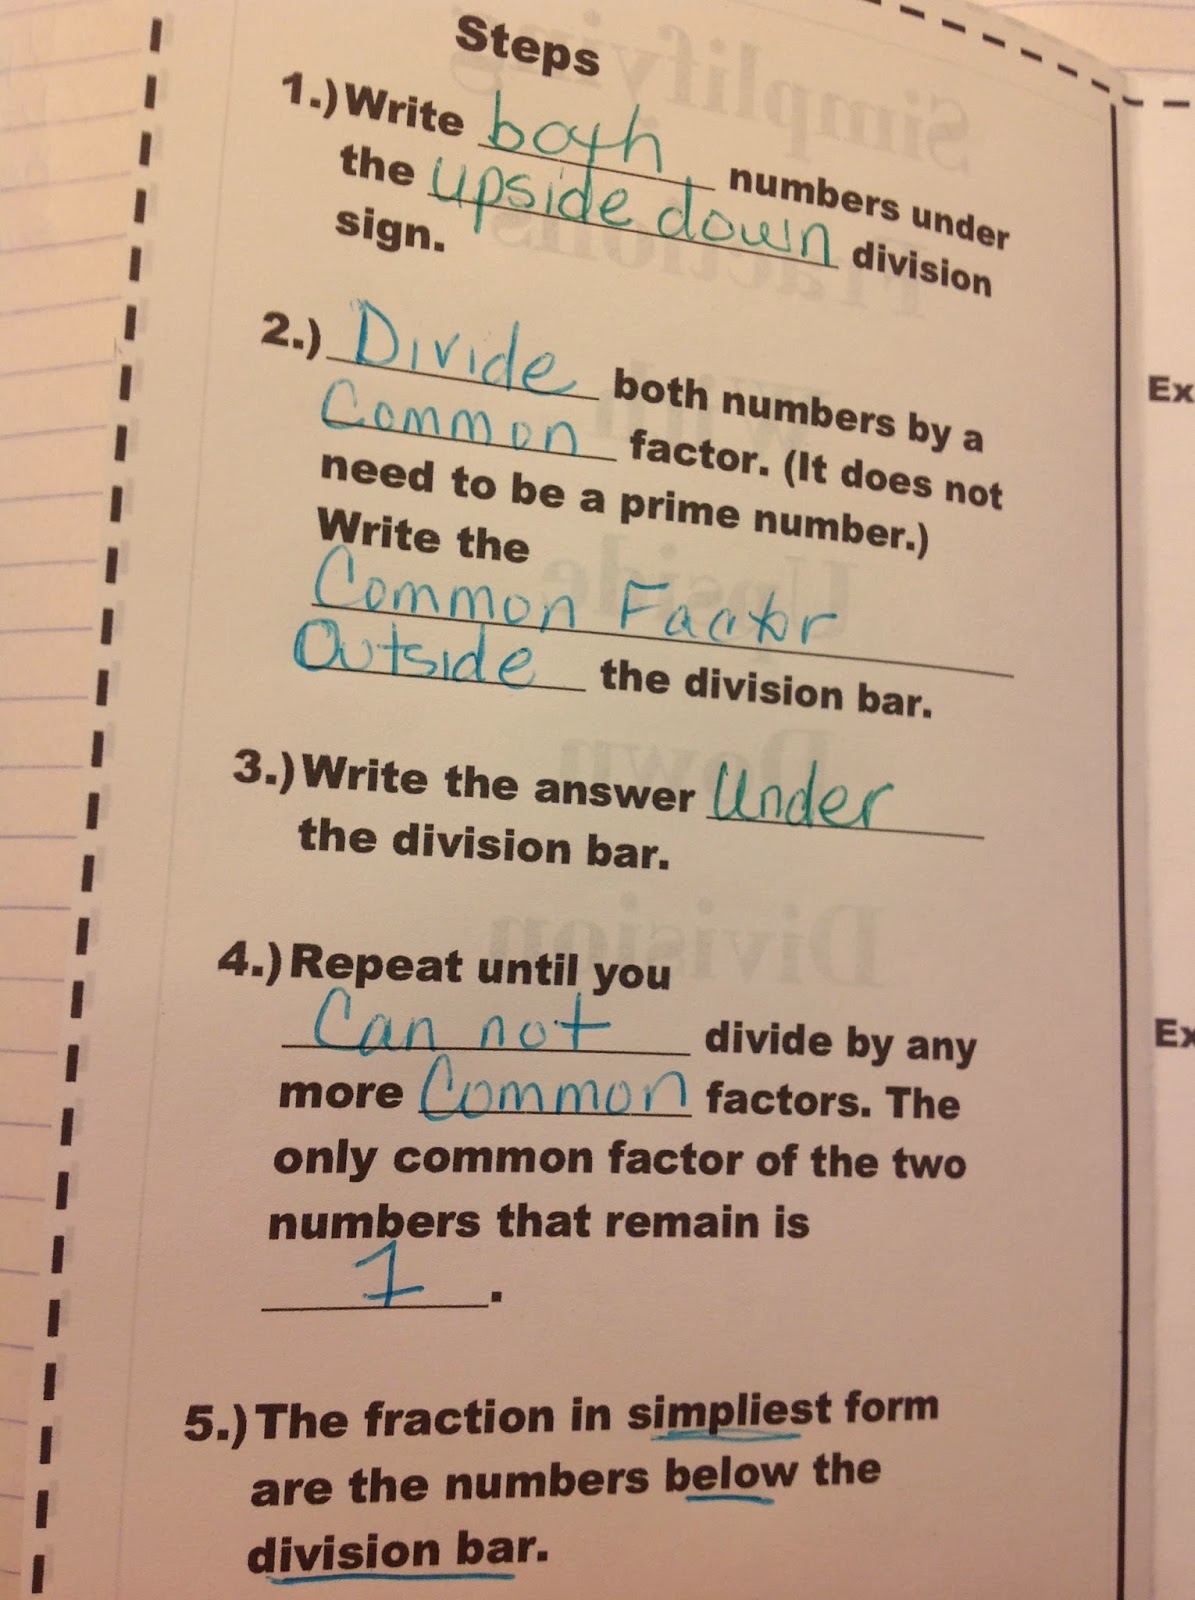 Steps
1.) Write both numbers under
the upside down division
sign.
2.) Divide both numbers by a
Common factor. (It does not
need to be a prime number.)
Write the
Common Factor
Outside the division bar.
3.) Write the answer Under
the division bar.
4.) Repeat until you
Can not divide by any
more Common factors. The
only common factor of the two
numbers that remain is
1.
5.) The fraction in simpliest form
are the numbers below the
division bar.
Ex
Ex
Simplifying
Fractions
With
Upside
Down
Division